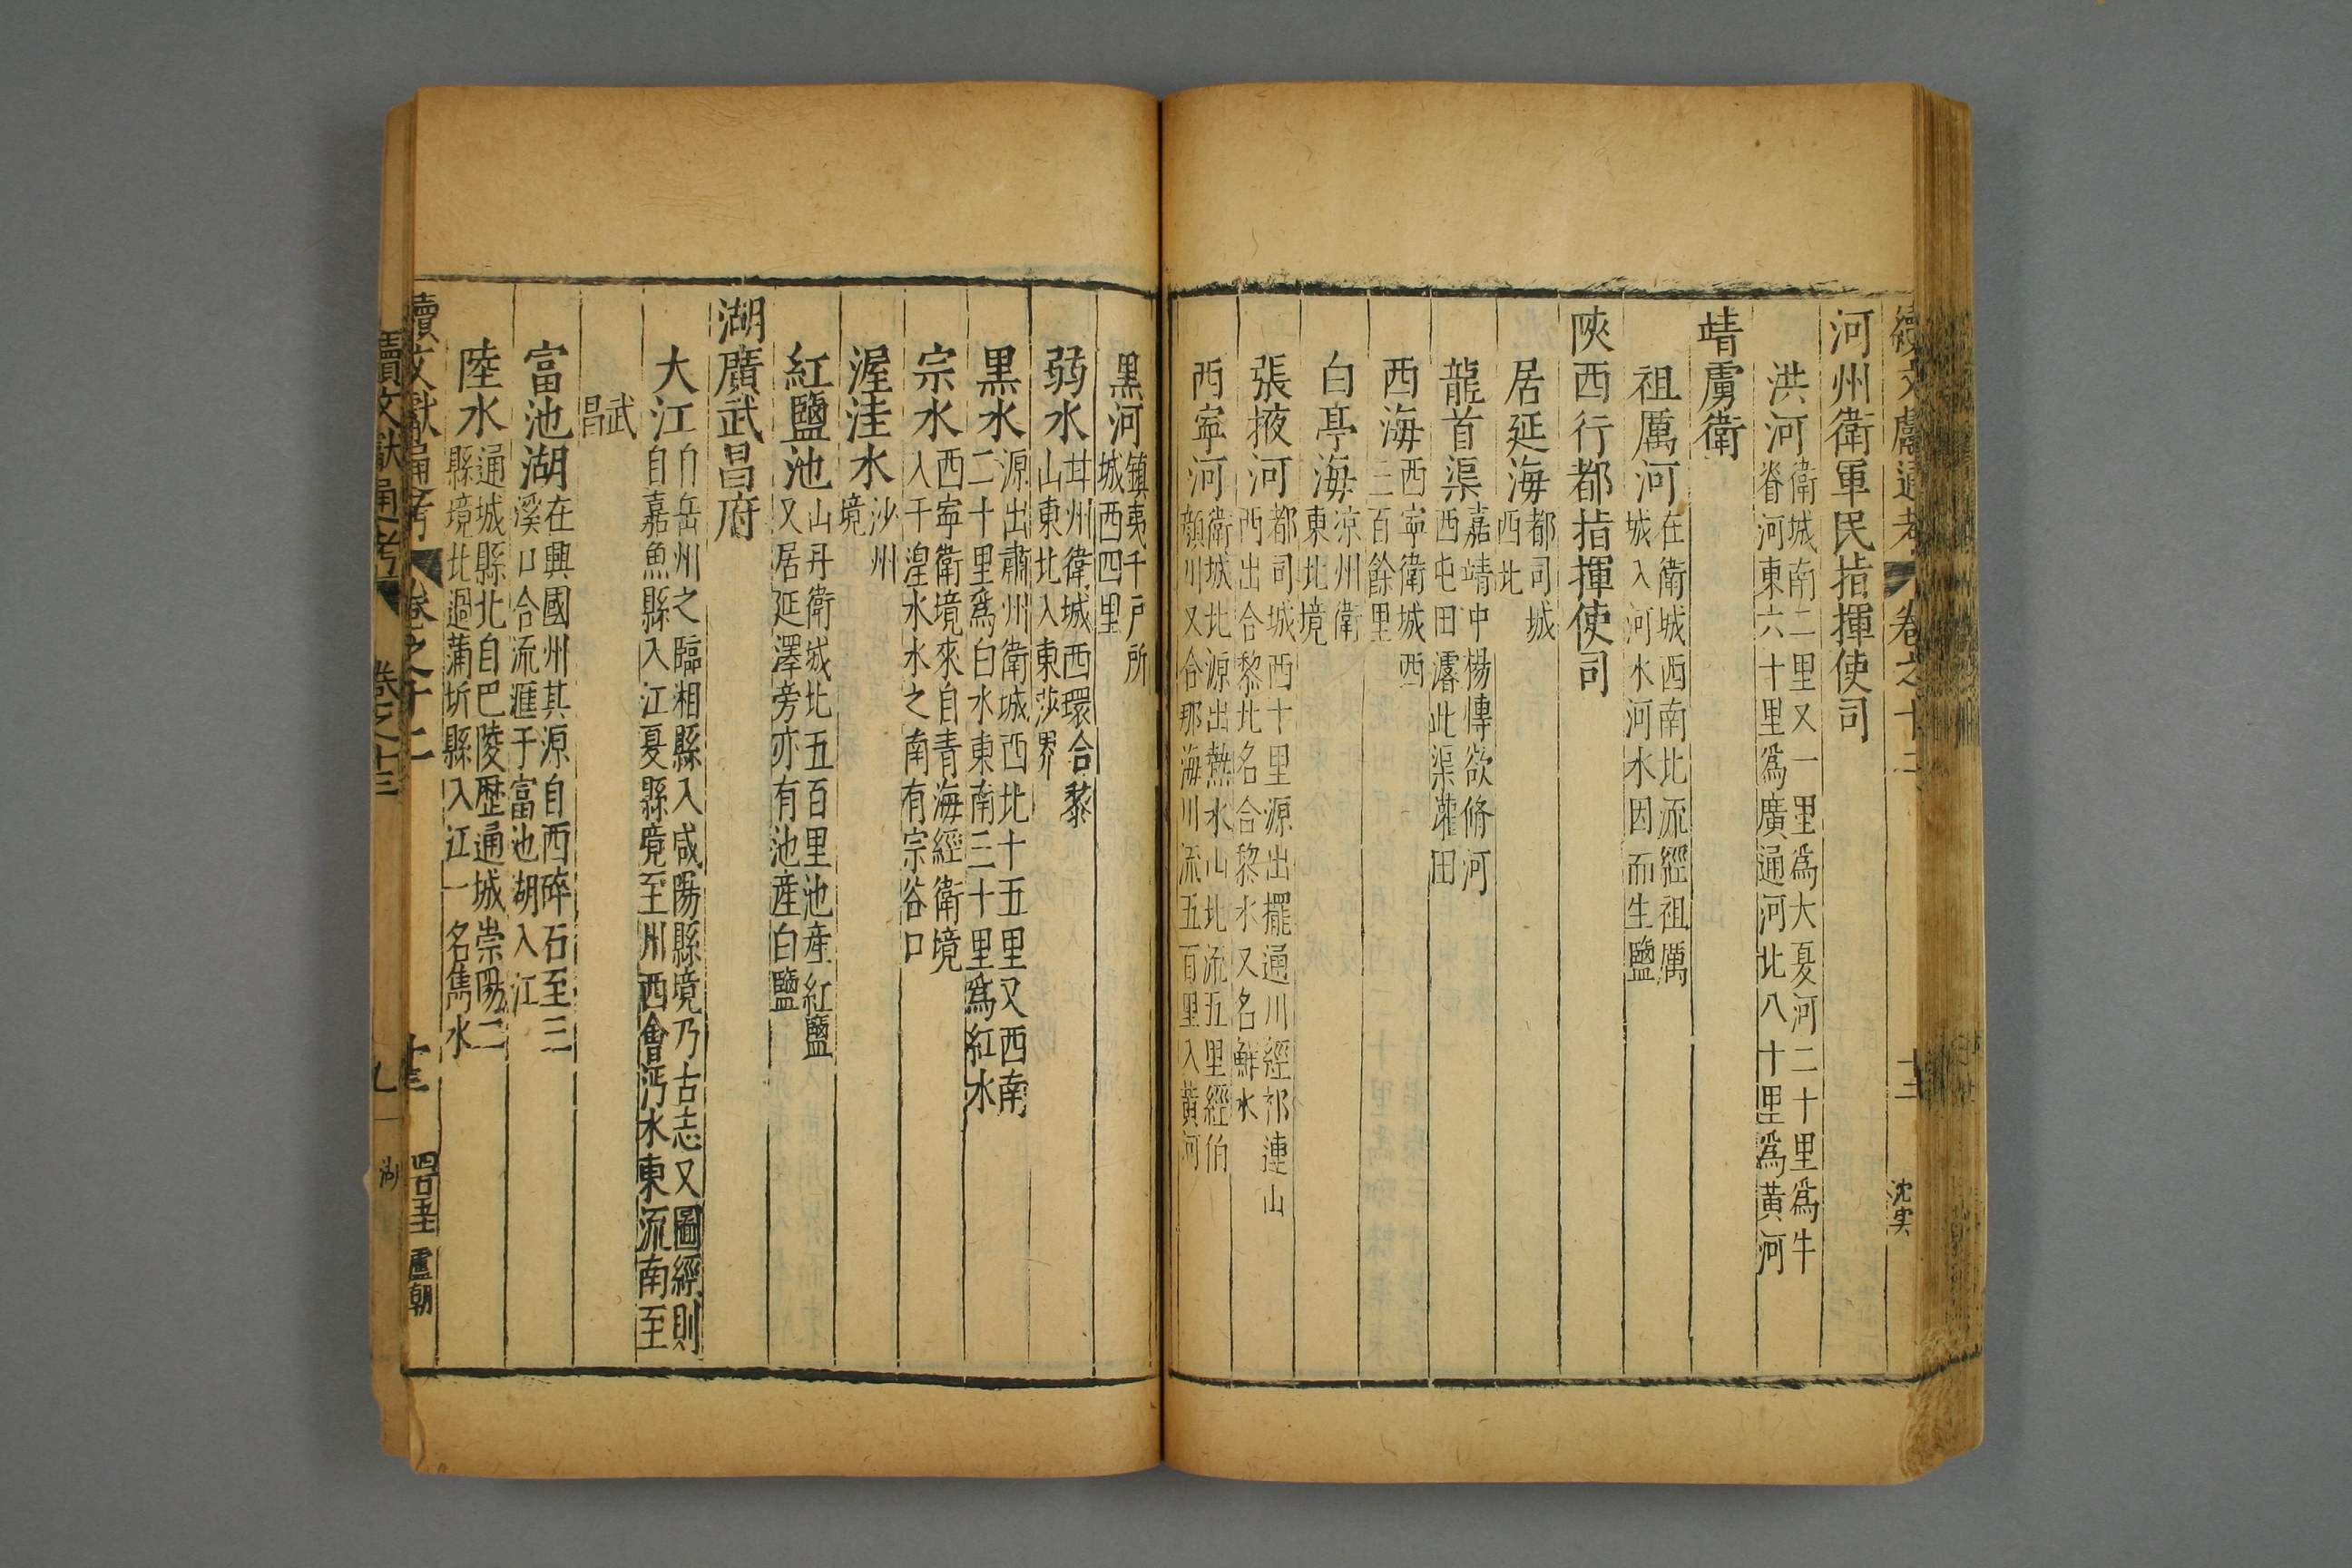 續文獻通考 卷之十二 十三 沈實
河州衛軍民指揮使司
洪河衛城南二里又一里爲大夏河二十里爲牛
脊河東六十里爲廣通河北八十里爲黃河
靖虜衛
祖厲河在衛城西南北流經祖厲
城入河水河水因而生鹽
陝西行都指揮使司
居延海都司城
西北
龍首渠嘉靖中楊慱欲脩河
西屯田濬此渠灌田
西海西寧衛城西
三百餘里
白亭海涼州衛
東北境
張掖河都司城西十里源出擺通川經祁連山
西出合黎北名合黎水又名鮮水
西寧河衛城北源出熱水山北流五里經伯
顏川又合那海川流五百里入黃河
黑河鎮夷千戶所
城西四里
弱水甘州衛城西環合黎
山東北入東莎界
黑水源出肅州衛城西北十五里又西南
二十里爲白水東南三十里爲紅水
宗水西寧衛境來自青海經衛境
入于湟水水之南有宗谷口
渥洼水沙州
境
紅鹽池山丹衛城北五百里池産紅鹽
又居延澤旁亦有池産白鹽
湖廣武昌府
大江自岳州之臨湘縣入咸陽縣境乃古志又圖經則
自嘉魚縣入江夏縣境至州西會沔水東流南至
武
昌
富池湖在興國州其源自西碎石至三
溪口合流滙于富池湖入江
陸水通城縣北自巴陵歷通城崇陽二
縣境北過蒲圻縣入江一名雋水
續文獻通考 卷之十二 十三 盧朝
續文獻通考 卷之十三 九